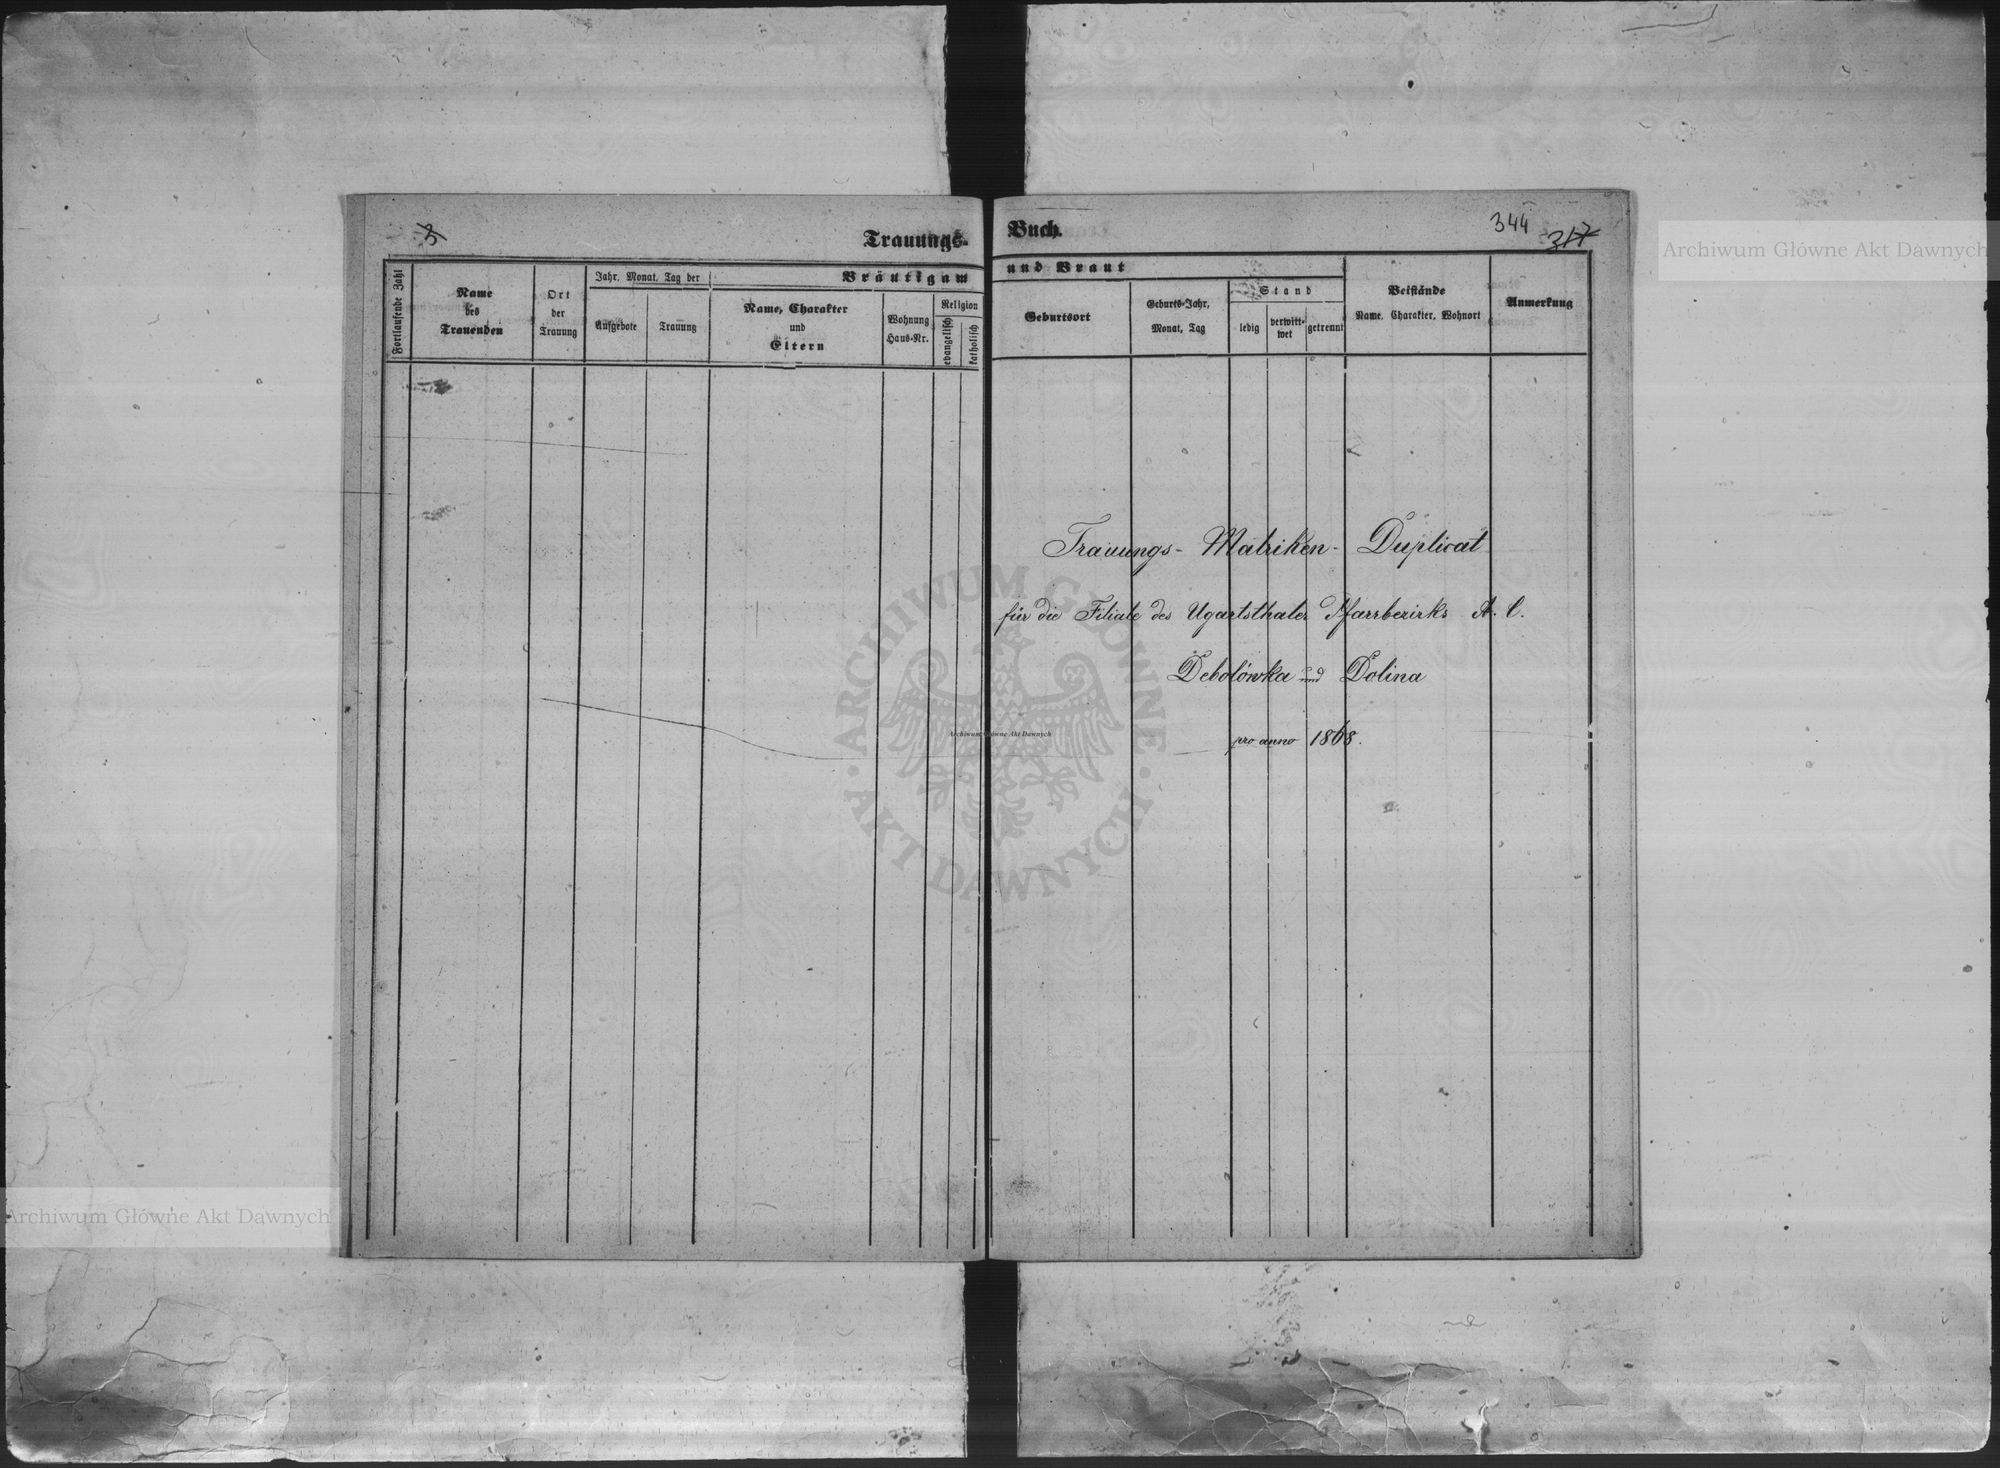 344
317
Trauungs-Buch.
Fortlaufende Zahl
Name des Trauenden
Ort der Trauung
Jahr, Monat, Tag der
Aufgebote
Trauung
Bräutigam und Braut
Name, Charakter und Eltern
Wohnung Haus-Nr.
Religion
evangelisch
katholisch
Geburtsort
Geburts-Jahr, Monat, Tag
Stand
ledig
verwittwet
getrennt
Beistände
Name, Charakter, Wohnort
Anmerkung
Trauungs- Matriken- Duplicat
für die Filiale des Ugartsthaler Pfarrbezirks A. C.
Debolówka und Dolina
pro anno 1868.
Archiwum Główne Akt Dawnych
Archiwum Główne Akt Dawnych
Archiwum Główne Akt Dawnych
ARCHIWUM GŁÓWNE · AKT DAWNYCH ·